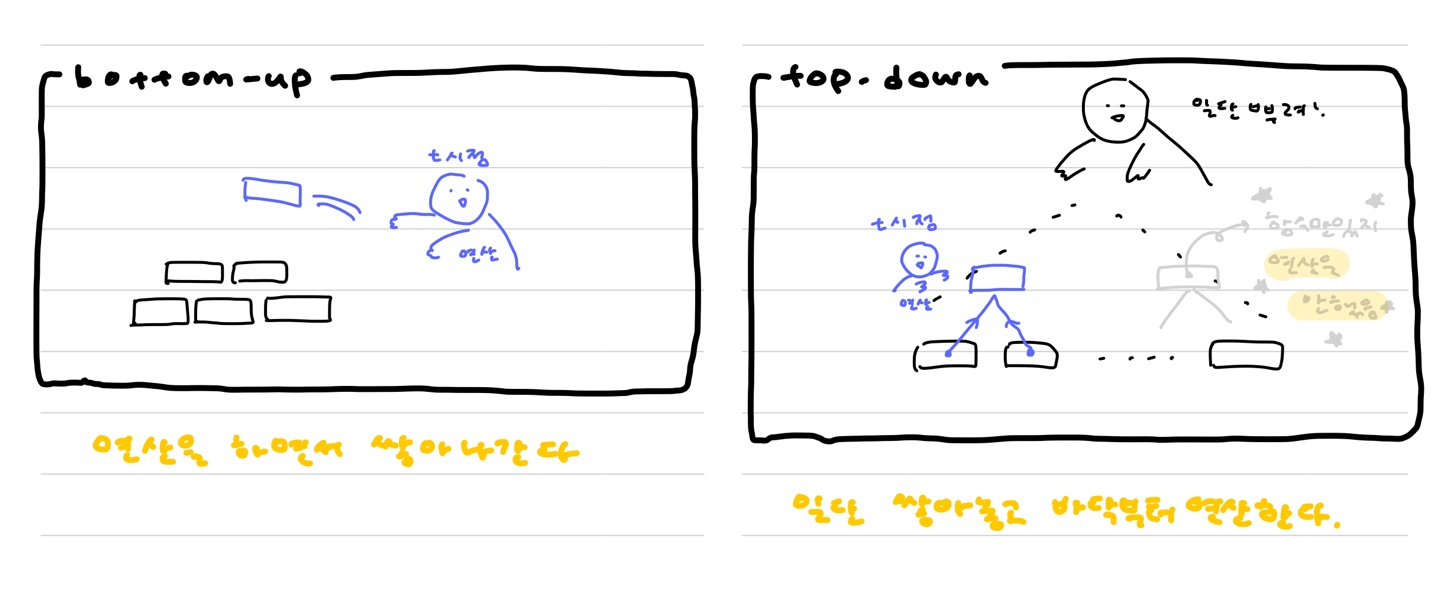 bottom-up
t시점
연산
연산을 하면서 쌓아나간다
top-down
일단 뿌려!
t시점
연산
함수만있지
연산을
안했음
일단 쌓아놓고 바닥부터 연산한다.